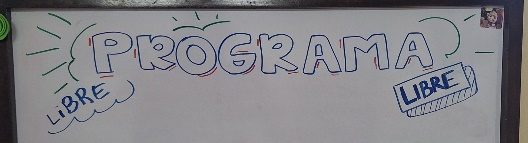 PROGRAMA
LiBRE
LIBRE